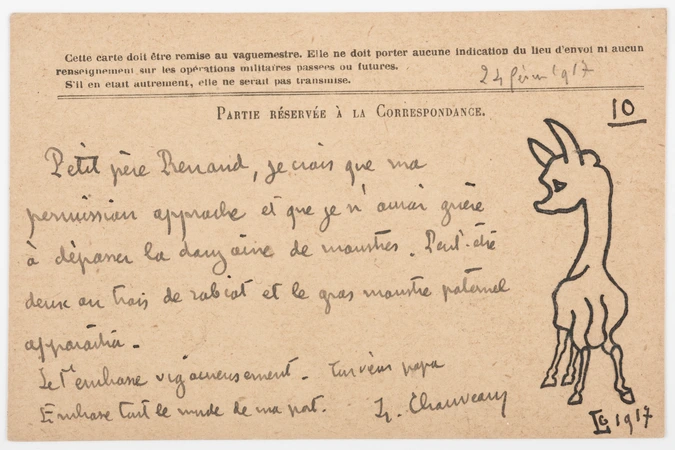 Cette carte doit être remise au vaguemestre. Elle ne doit porter aucune indication du lieu d'envoi ni aucun
renseignement sur les opérations militaires passées ou futures.
S'il en était autrement, elle ne serait pas transmise.
24 février 1917
PARTIE RÉSERVÉE À LA CORRESPONDANCE.
10
Petit père Renaud, je crois que ma
permission approche et que je n'aurai guère
à dépasser la douzaine de monstres. Peut-être
deux ou trois de rabiot et le gros monstre paternel
apparaîtra.
Je t'embrasse vigoureusement. Ton vieux papa
Embrasse tout le monde de ma part. L. Chauveau
LC 1917